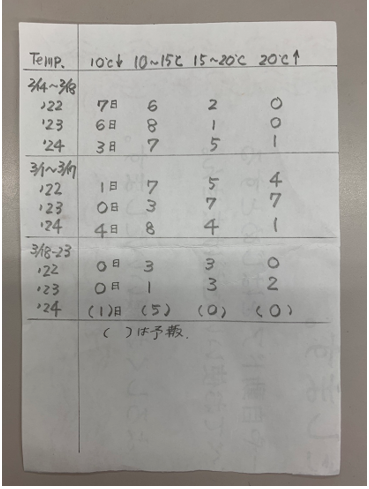 Temp. 10℃↓ 10~15℃ 15~20℃ 20℃↑
'22 7日 6 2 0
'23 6日 8 1 0
'24 3日 7 5 1
3/1~3/17
'22 1日 7 5 4
'23 0日 3 7 7
'24 4日 8 4 1
3/18-23
'22 0日 3 3 0
'23 0日 1 3 2
'24 (1)日 (5) (0) (0)
( )は予報.